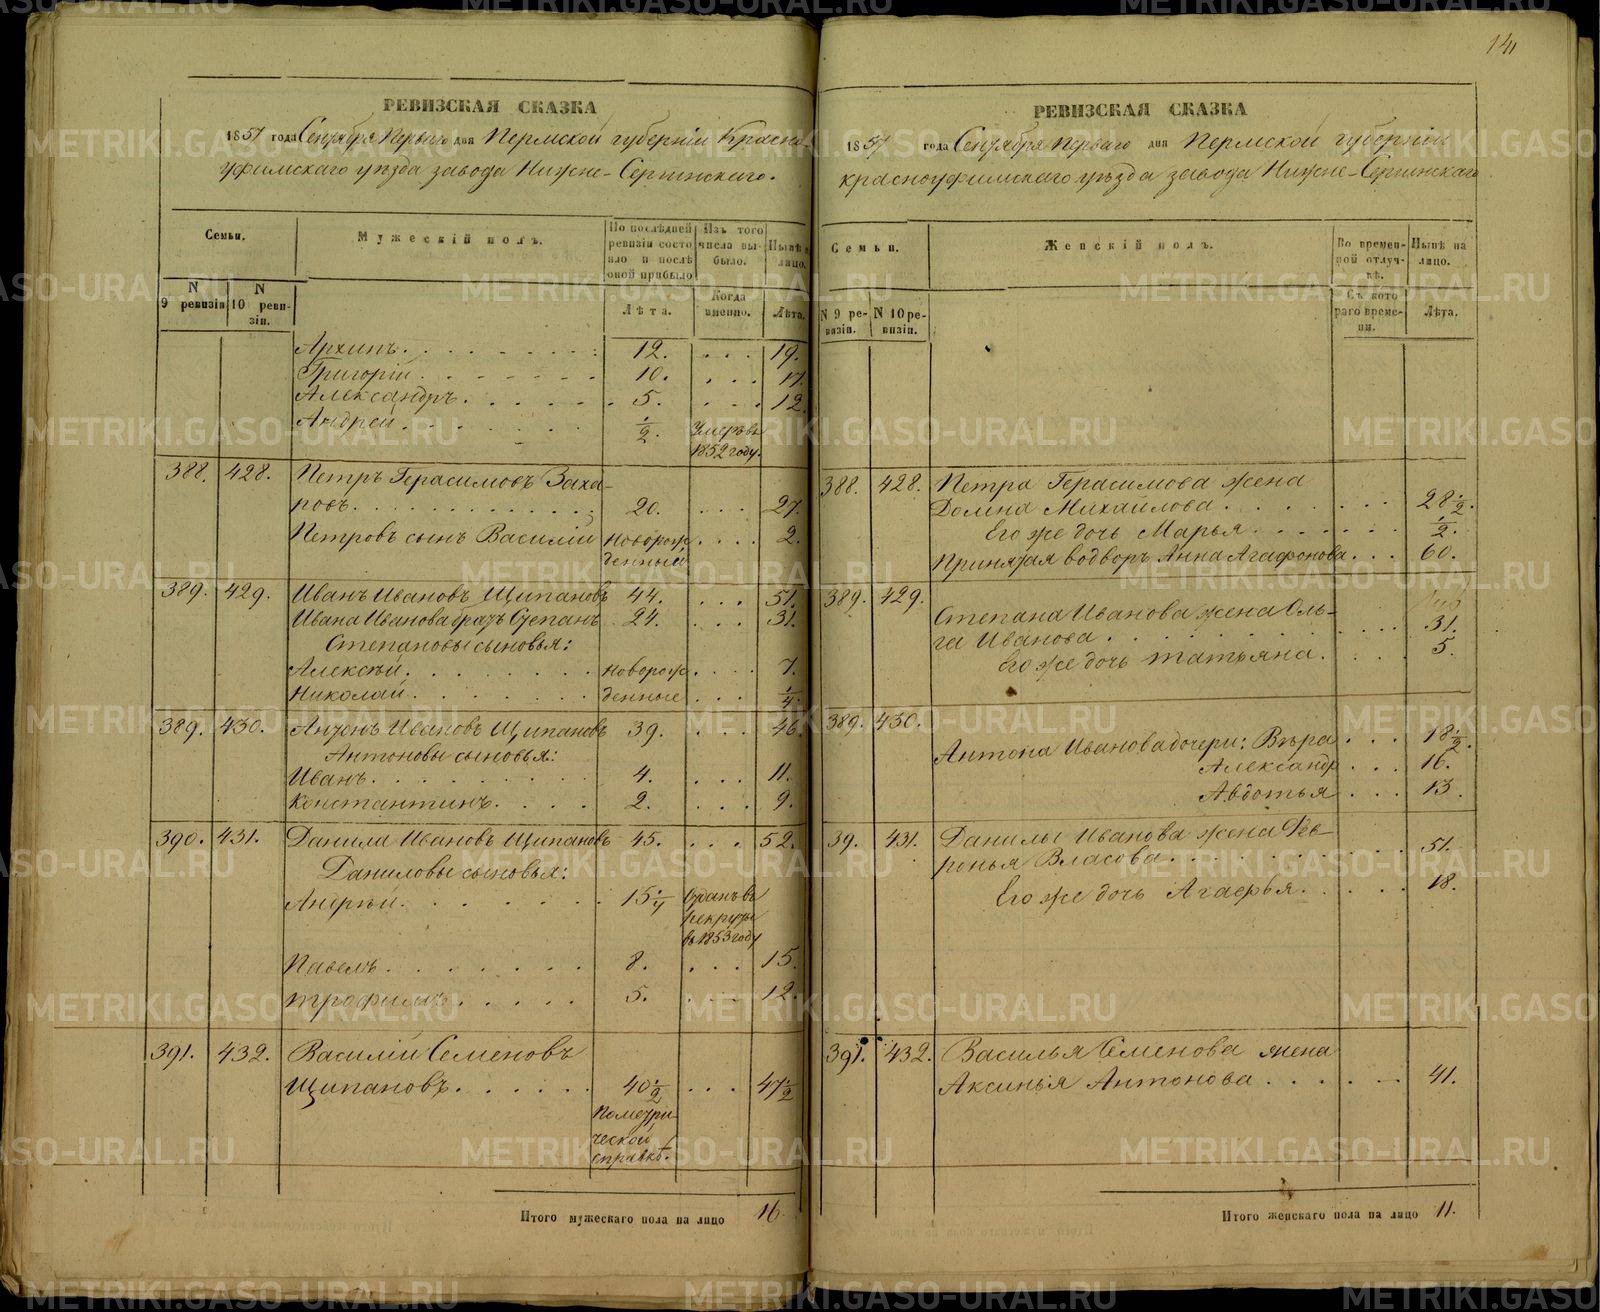 141
РЕВИЗСКАЯ СКАЗКА
1857 года Сентября Перваго дня Пермской губерніи Красно-
уфимскаго уѣзда завода Нижне-Сергинскаго.
Семьи.
Мужескій полъ.
По послѣдней ревизіи состояло и послѣ оной прибыло
Изъ того числа выбыло.
Нынѣ на лицо.
N 9 ревизіи
N 10 ревизіи.
Лѣта.
Когда именно.
Лѣта.
Архипъ. 12. 19.
Григорій. 10. 17.
Александръ. 5. 12.
Андрей. ½. Умеръ въ
1852 году.
388. 428. Петръ Герасимовъ Заха-
ровъ. 20. 27.
Петровъ сынъ Василій Новорож 2.
денный
389. 429. Иванъ Ивановъ Щипановъ 44. 51.
Ивана Иванова братъ Степанъ 24. 31.
Степановы сыновья:
Алексѣй. Новорож 7.
Николай. денные ¼.
389. 430. Антонъ Ивановъ Щипановъ 39. 46.
Антоновы сыновья:
Иванъ. 4. 11.
Константинъ. 2. 9.
390. 431. Данила Ивановъ Щипановъ 45. 52.
Даниловы сыновья:
Андрѣй. 15¼ Отданъ въ
рекруты
въ 1853 году
Павелъ. 8. 15.
Трофимъ. 5. 12.
391. 432. Василій Семеновъ
Щипановъ. 40½ 47½
По метри-
ческой
справкѣ.
Итого мужескаго пола на лицо 16
РЕВИЗСКАЯ СКАЗКА
1857 года Сентября Перваго дня Пермской губерніи
Красноуфимскаго уѣзда завода Нижне-Сергинскаго
Семьи.
Женскій полъ.
Во временной отлучкѣ.
Нынѣ на лицо.
N 9 ревизіи.
N 10 ревизіи.
Съ котораго времени.
Лѣта.
388. 428. Петра Герасимова жена
Домна Михайлова. 28½.
Его же дочь Марья. ½.
Принятая во дворъ Анна Агафонова. 60.
389. 429.
Степана Иванова жена Оль-
га Иванова. 31.
Его же дочь Татьяна. 5.
389. 430.
Антона Иванова дочери: Вѣра 18½.
Александр 16.
Авдотья 13.
39. 431. Данилы Иванова жена Фев-
ронья Власова. 51.
Его же дочь Агафья. 18.
391. 432. Василья Семенова жена
Аксинья Антонова. 41.
Итого женскаго пола на лицо 11.
METRIKI.GASO-URAL.RU